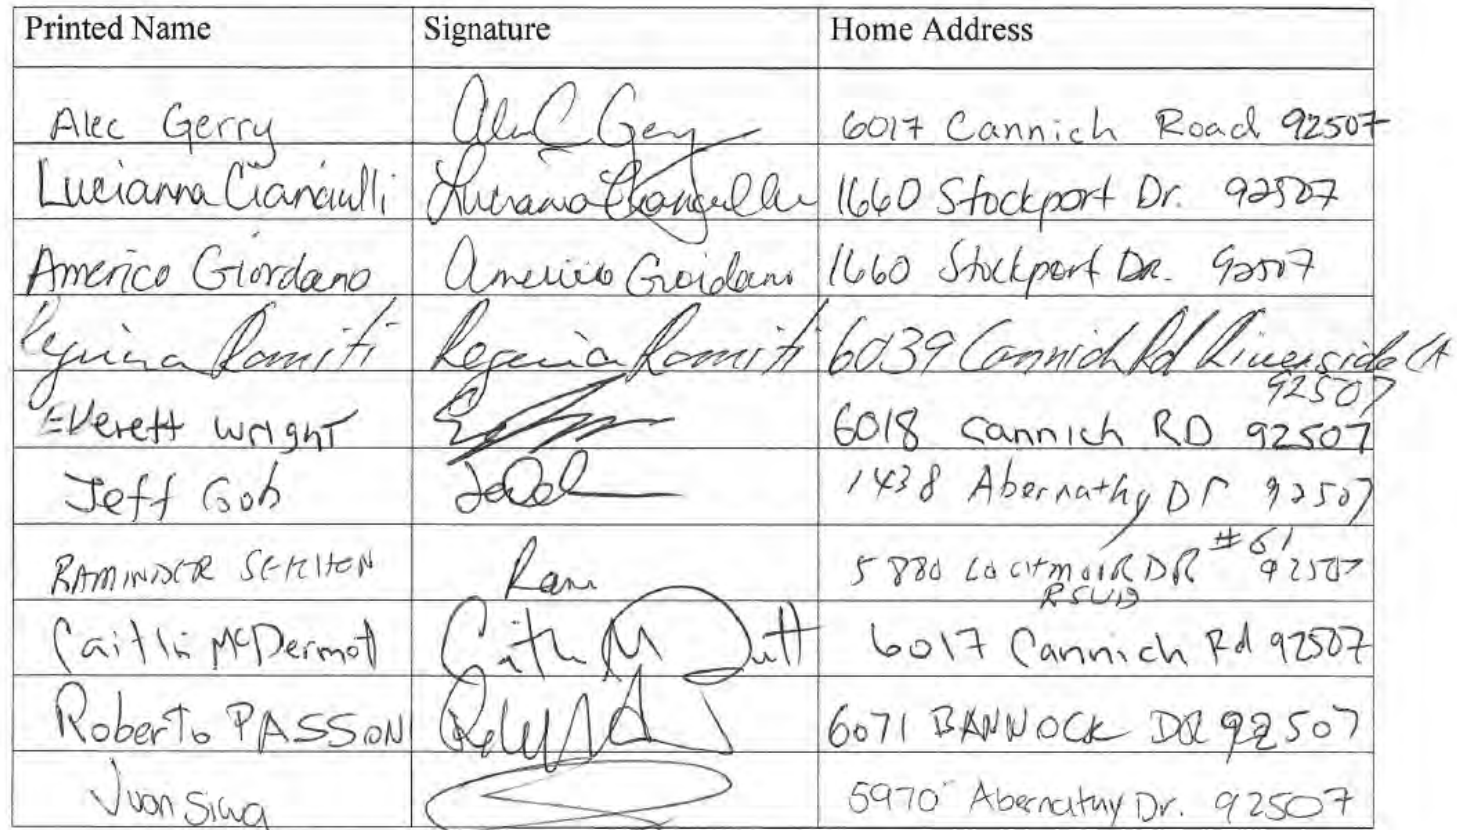 Printed Name Signature Home Address
Alec Gerry Alec Gerry 6017 Cannich Road 92507
Lucianna Cianciulli Luciana Cianciulli 1660 Stockport Dr. 92507
Americo Giordano Americo Giordano 1660 Stockport DR. 92507
Regina Romiti Regina Romiti 6039 Cannich Rd Riverside CA
92507
Everett Wright 6018 Cannich RD 92507
Jeff Goh 1438 Abernathy Dr 92507
#61
RAMINDER SEKHON Ram 5880 LOCHMOIR DR 92507
RSVD
Caitlin McDermot 6017 Cannich Rd 92507
Roberto PASSON 6071 BANNOCK DR 92507
Juan Silva 5970 Abernathy Dr. 92507